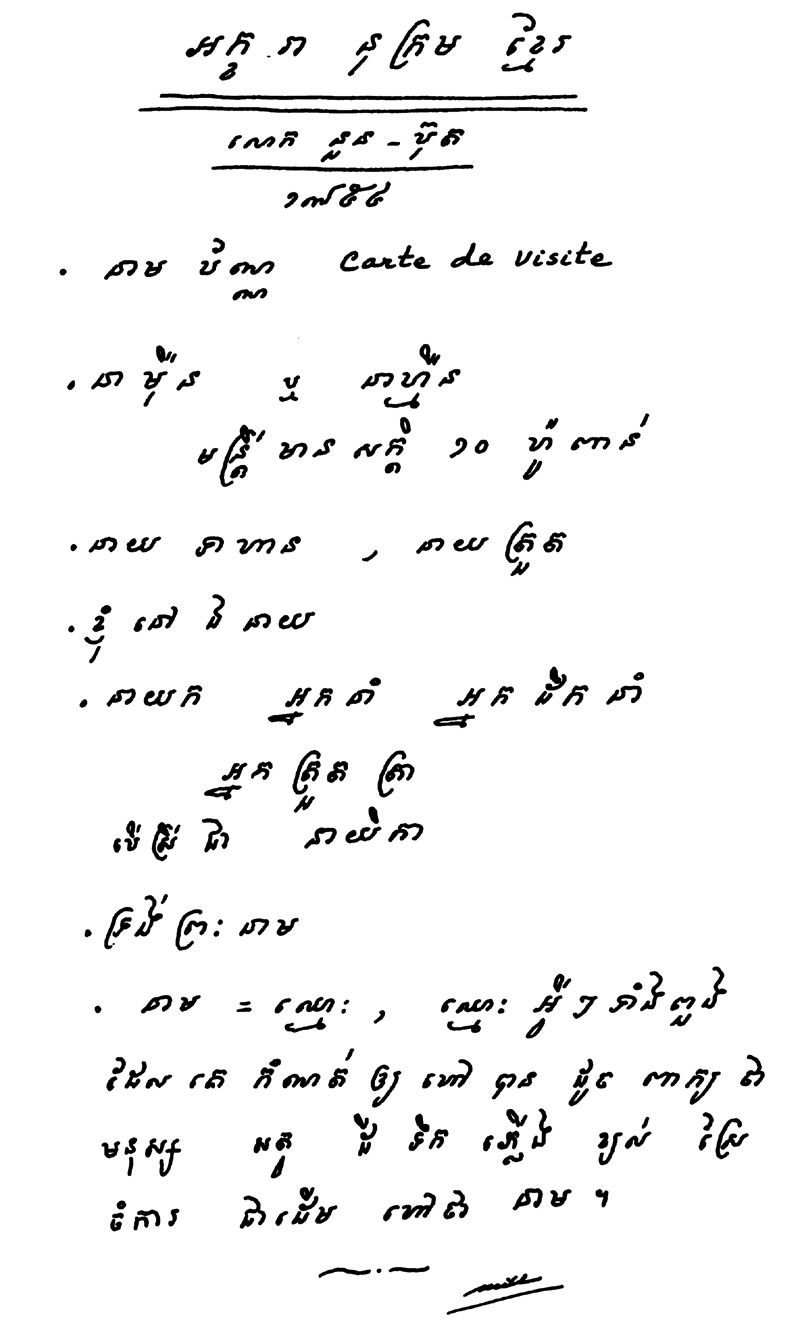 អក្ខរានុក្រម ខ្មែរ
លោក នួន-ប៊ុត
១៩៥៤
. នាម ប័ណ្ណ Carte de visite
. នាម៉ឺន ឬ នាហ្មឺន
មន្ត្រី មាន សក្តិ ១០ ហ៊ូ ពាន់
. នាយ ទាហាន , នាយ ត្រួត
. ខ្ញុំ នៅ ឯ នាយ
. នាយក អ្នកនាំ អ្នក ដឹក នាំ
អ្នក ត្រួត ត្រា
បើ ស្រី ជា នាយិកា
. ទ្រង់ ព្រះ នាម
. នាម = ឈ្មោះ , ឈ្មោះ អ្វីៗ ទាំងពួង
ដែល គេ កំណត់ ឲ្យ ហៅ បាន ដូច ពាក្យ ជា
មនុស្ស អត្ថ ដី ទឹក ភ្លើង ខ្យល់ ស្រែ
ចំការ ជាដើម ហៅជា នាម ។